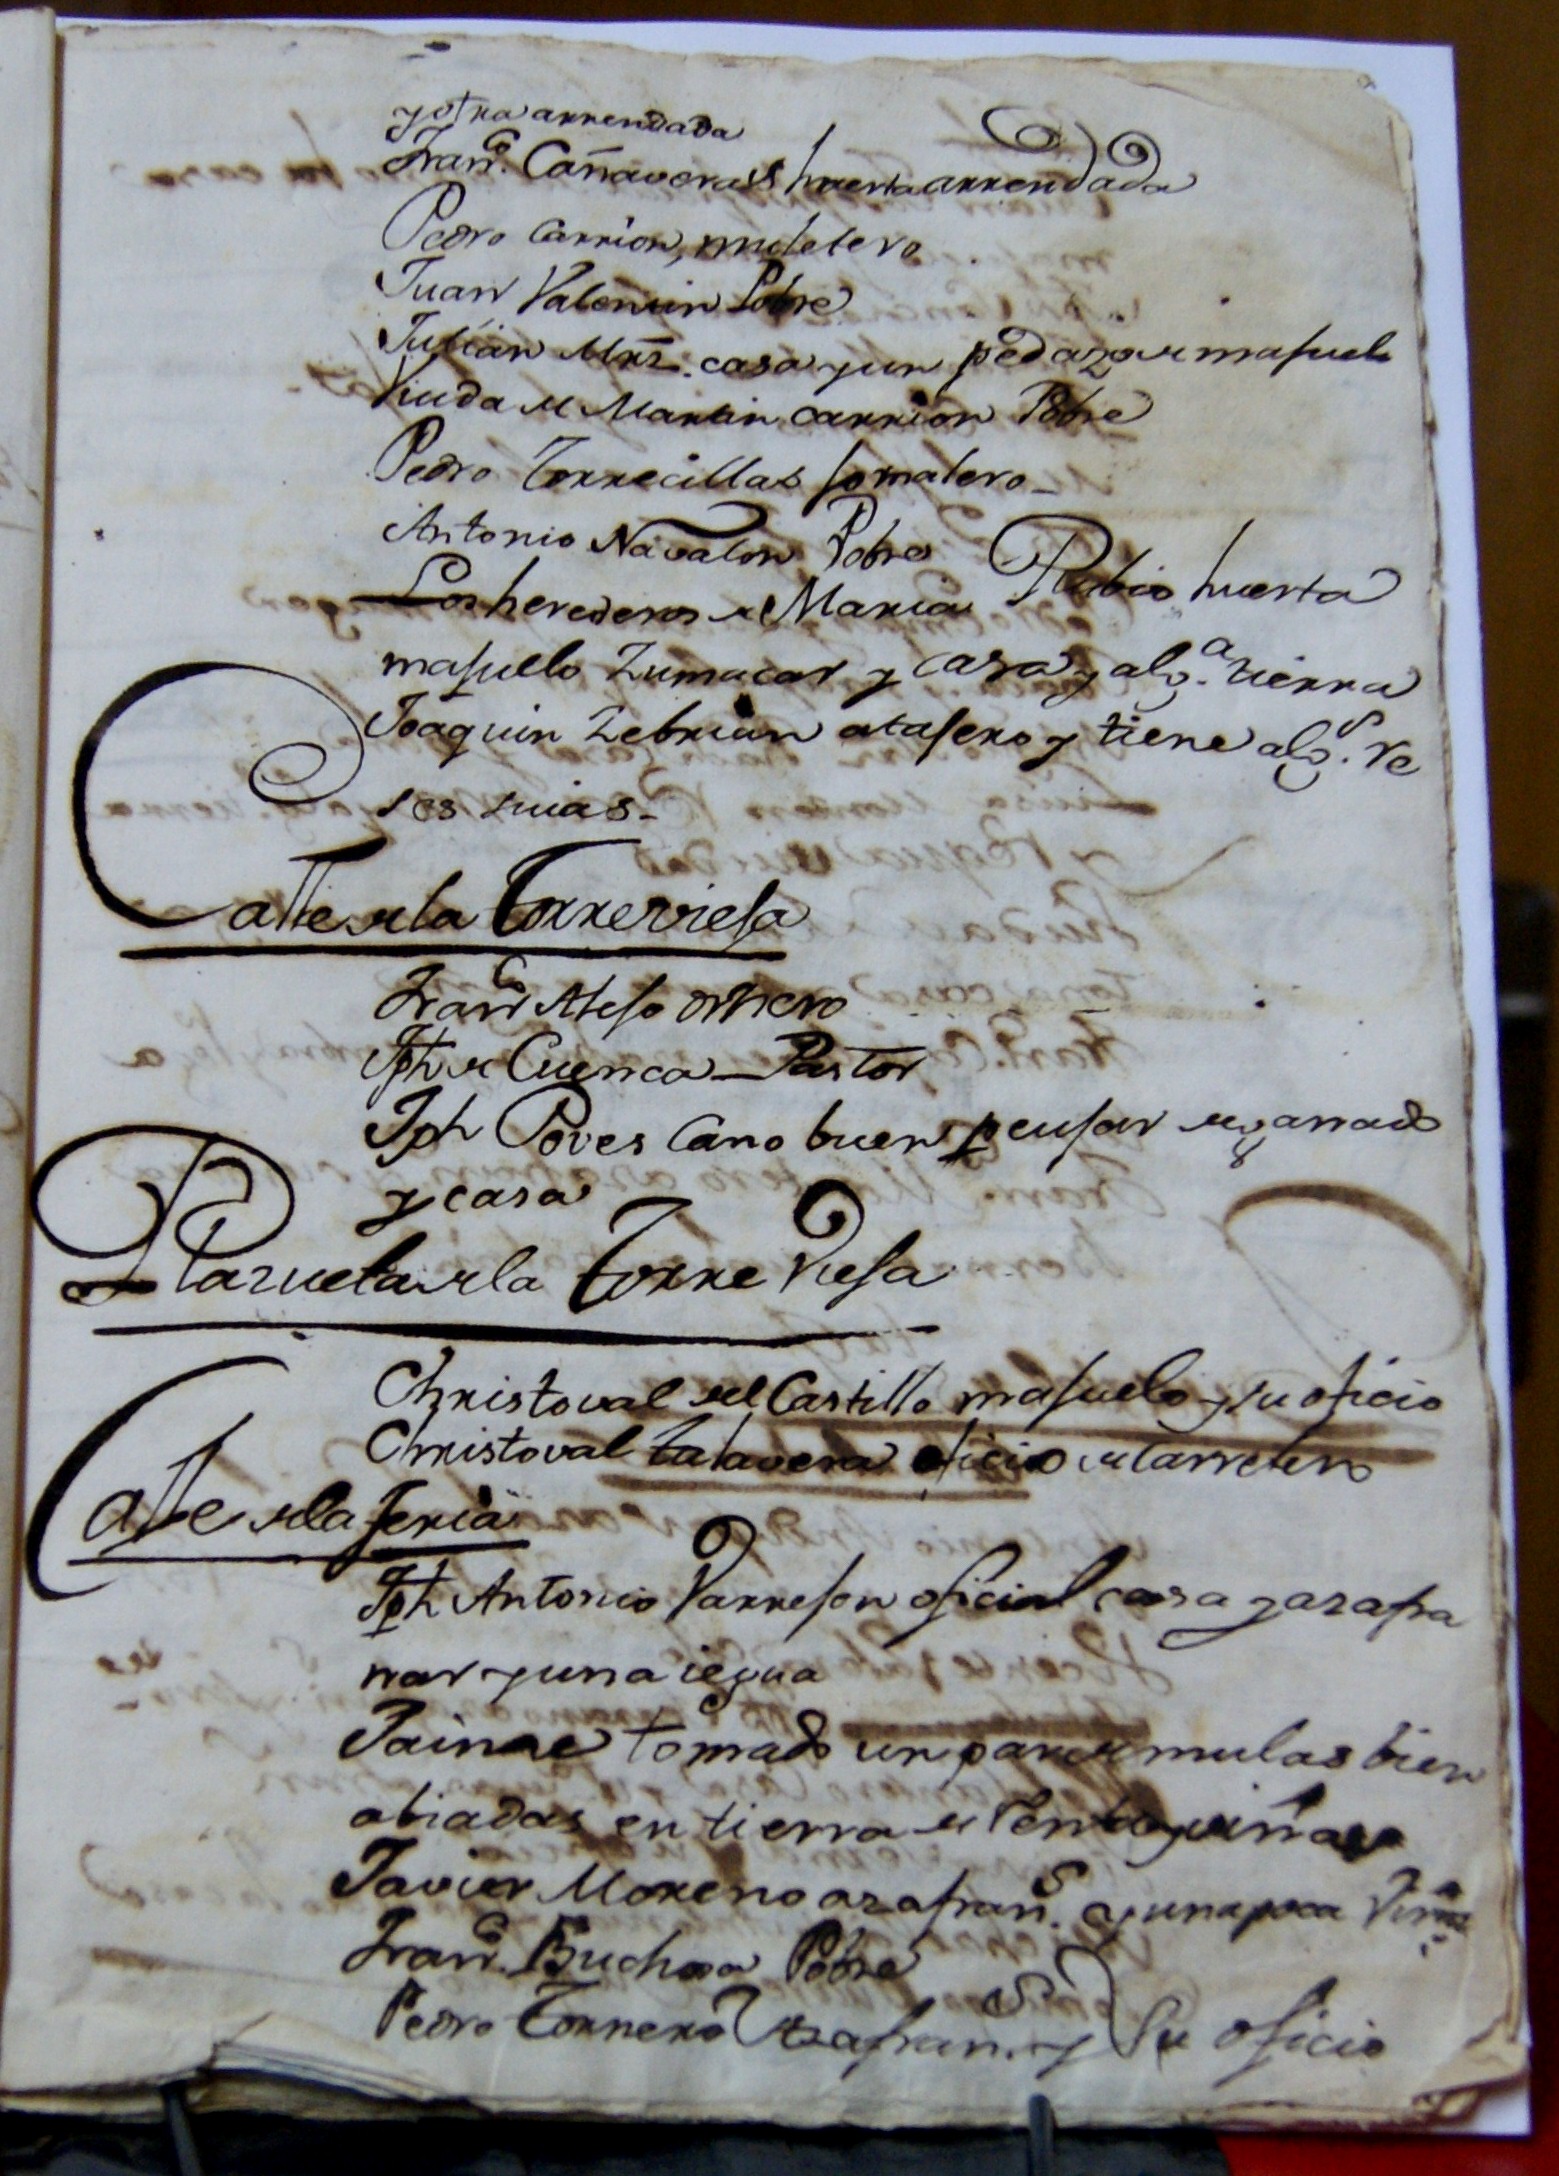 y otra arrendada
Franco. Cañaverals huerta arrendada
Pedro Carrion, muletero
Juan Valentin Pobre
Julian Mrz. casa y un pedazo de majuelo
Viuda de Martin carrion Pobre
Pedro Torrecillas Jornalero
Antonio Navalon Pobre
Los herederos de Maria Rubio huerta
majuello Zumacar y casa y alga. tierra
Joaquin Zebrian atajero y tiene algs. re
ses suias
Calle de la Torrevieja
Franco Alejo ornero
Jph de Cuenca Pastor
Jph Poves Cano buen peujar de ganado
y casa
Plazuela de la Torre Vieja
Christoval del Castillo majuelo y su oficio
Christoval talavera oficio de Carretero
Calle de la feria
Jph Antonio Varrejon oficial casa y azafra
nar y una iegua
Jaime tornado un par de mulas bien
abiadas en tierra de Rento y viñas
Javier Moreno azafrans. y una poca Viña
Franco. Buchosa Pobre
Pedro Tornero azafrans. y Su oficio